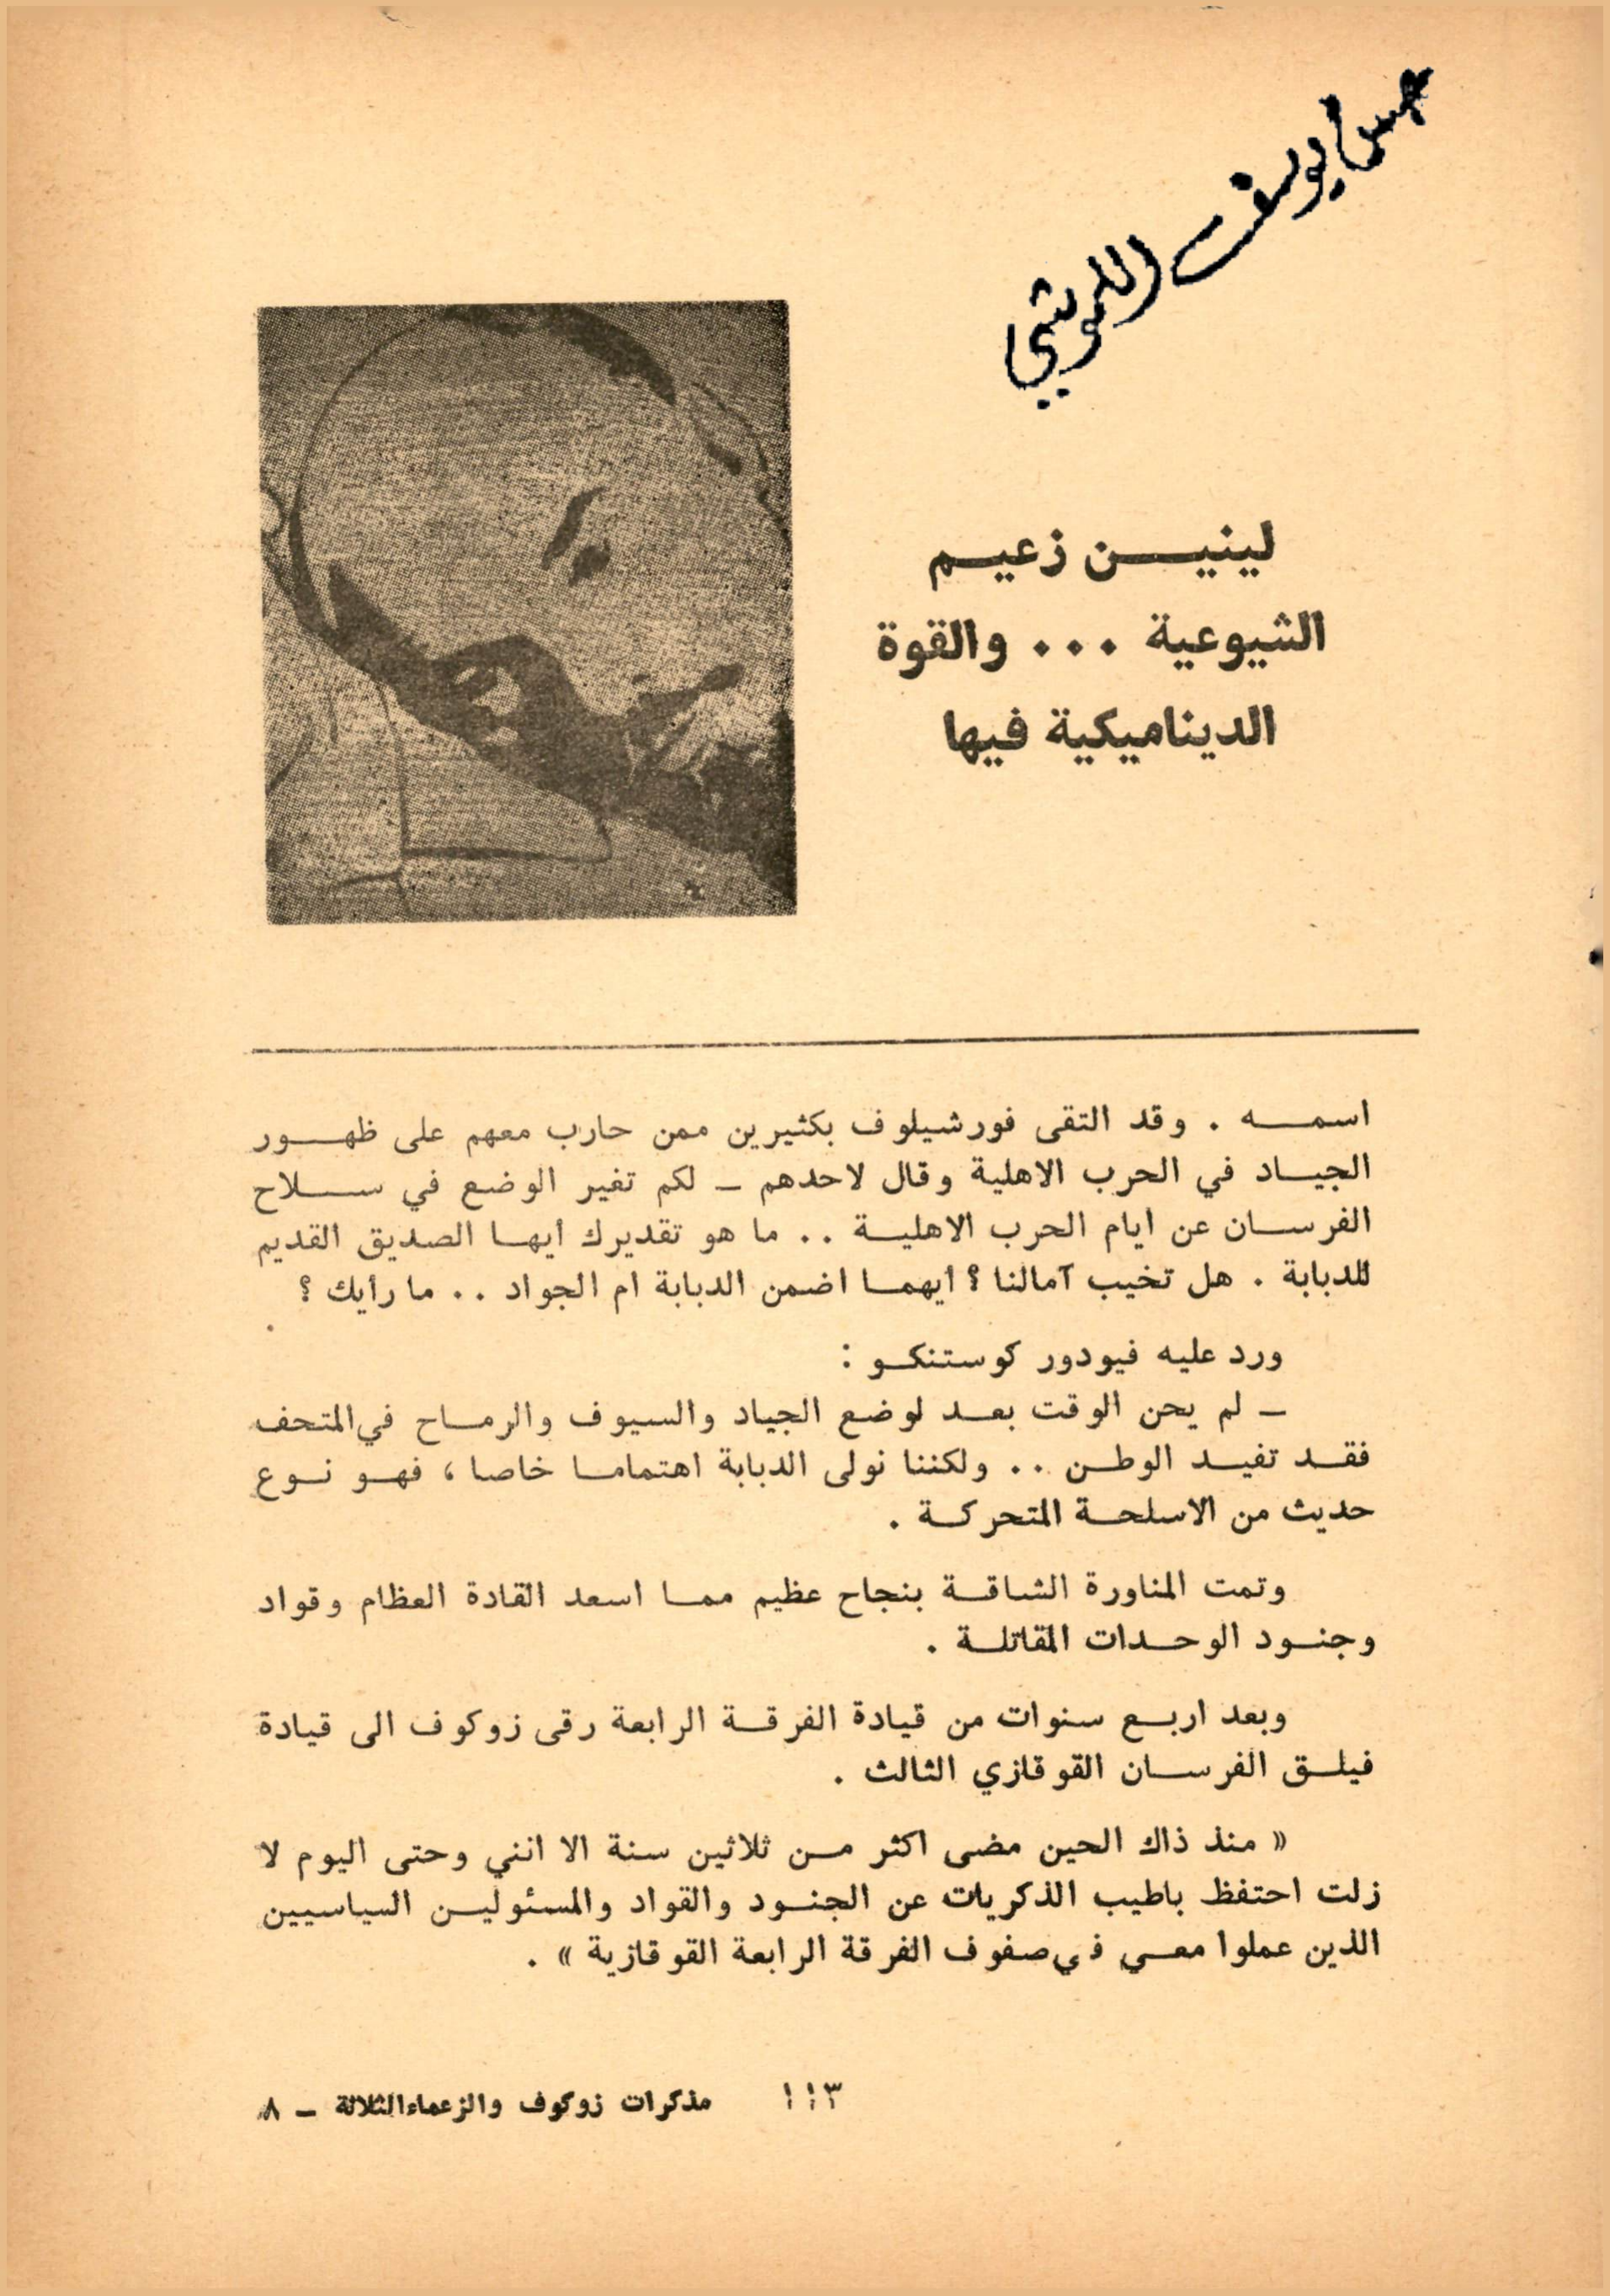 حسن يوسف اللموشي
لينين زعيم
الشيوعية ... والقوة
الديناميكية فيها
اسمه . وقد التقى فورشيلوف بكثيرين ممن حارب معهم على ظهور
الجياد في الحرب الاهلية وقال لاحدهم – لكم تغير الوضع في سلاح
الفرسان عن ايام الحرب الاهلية .. ما هو تقديرك ايها الصديق القديم
للدبابة . هل تخيب آمالنا ؟ ايهما اضمن الدبابة ام الجواد .. ما رايك ؟
ورد عليه فيودور كوستنكو :
– لم يحن الوقت بعد لوضع الجياد والسيوف والرماح في المتحف
فقد تفيد الوطن .. ولكننا نولى الدبابة اهتماما خاصا ، فهو نوع
حديث من الاسلحة المتحركة .
وتمت المناورة الشاقة بنجاح عظيم مما اسعد القادة العظام وقواد
وجنود الوحدات المقاتلة .
وبعد اربع سنوات من قيادة الفرقة الرابعة رقى زوكوف الى قيادة
فيلق الفرسان القوقازي الثالث .
« منذ ذاك الحين مضى اكثر من ثلاثين سنة الا انني وحتى اليوم لا
زلت احتفظ باطيب الذكريات عن الجنود والقواد والمسئولين السياسيين
الذين عملوا معي في صفوف الفرقة الرابعة القوقازية » .
١١٣
مذكرات زوكوف والزعماء الثلاثة – ٨